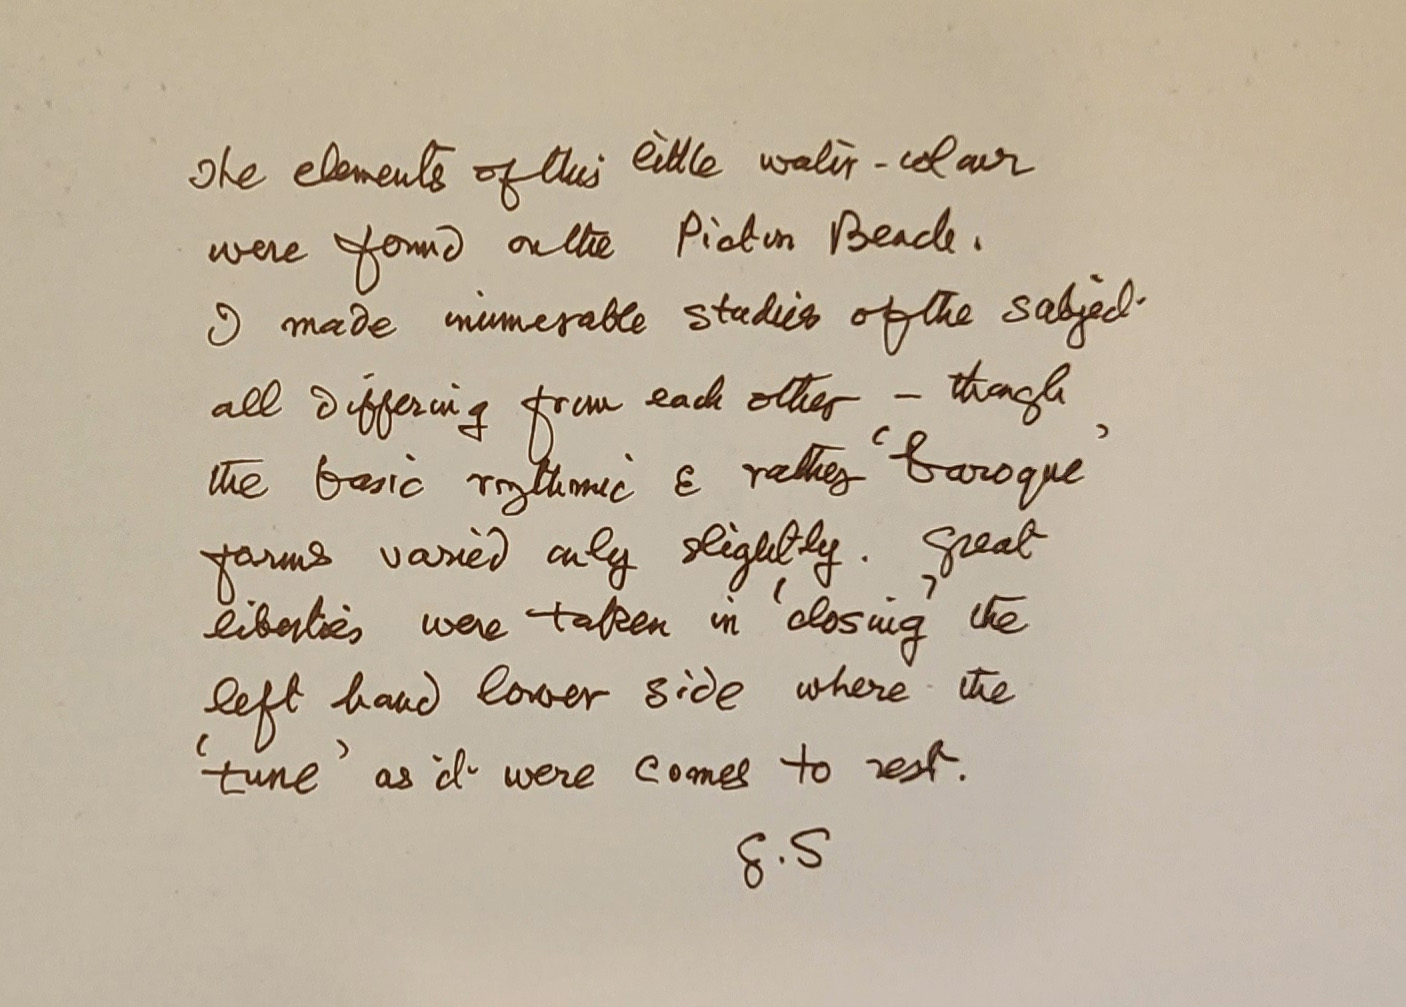 The elements of this little water-colour
were found on the Picton Beach.
I made inumerable studies of the subject
all differing from each other – though
the basic rythmic & rather 'baroque'
forms varied only slightly. Great
liberties were taken in 'closing' the
left hand lower side where the
'tune' as it were comes to rest.
G.S